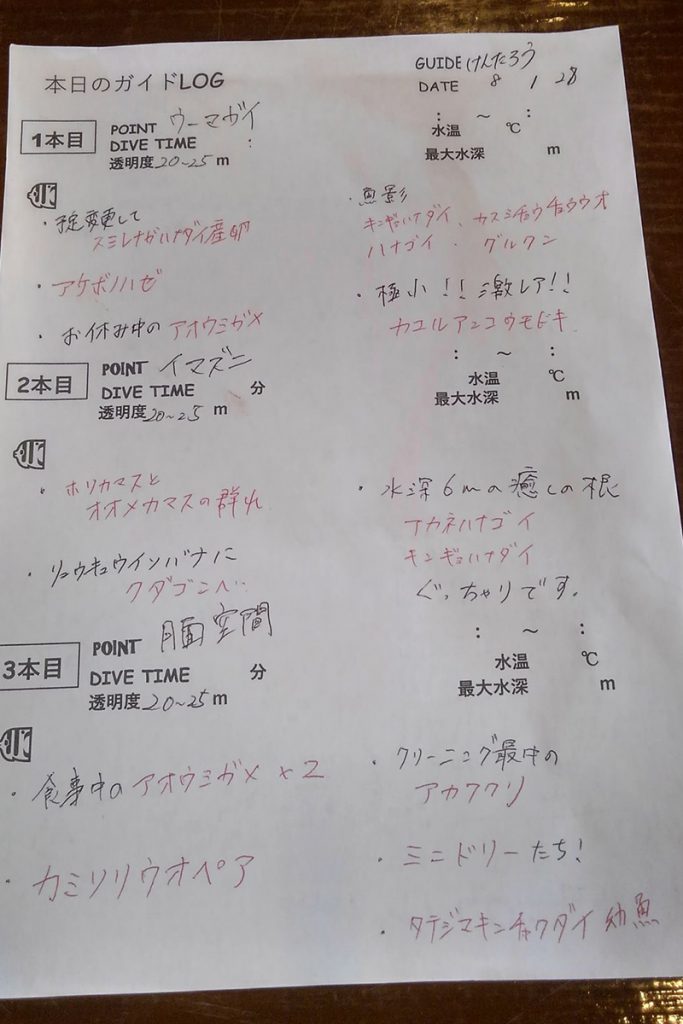 本日のガイドLOG
GUIDE けんたろう
DATE 8 1 28
1本目
POINT ウーマガイ
DIVE TIME :
透明度 20~25 m
: ~ :
水温 ℃
最大水深 m
・掟変更して
スミレナガハナダイ産卵
・アケボノハゼ
・お休み中のアオウミガメ
・魚影
キンギョハナダイ、カスミチョウチョウウオ
ハナゴイ、グルクン
・極小!!激レア!!
カエルアンコウモドキ
2本目
POINT イマズニ
DIVE TIME 分
透明度 20~25 m
: ~ :
水温 ℃
最大水深 m
・ホソカマスと
オオメカマスの群れ
・リュウキュウイソバナに
クダゴンベ
・水深6mの癒しの根
アカネハナゴイ
キンギョハナダイ
ぐっちゃりです。
3本目
POINT 月面空間
DIVE TIME 分
透明度 20~25 m
: ~ :
水温 ℃
最大水深 m
・食事中のアオウミガメ×2
・カミソリウオペア
・クリーニング最中の
アカククリ
・ミニドリーたち!
・タテジマキンチャクダイ幼魚